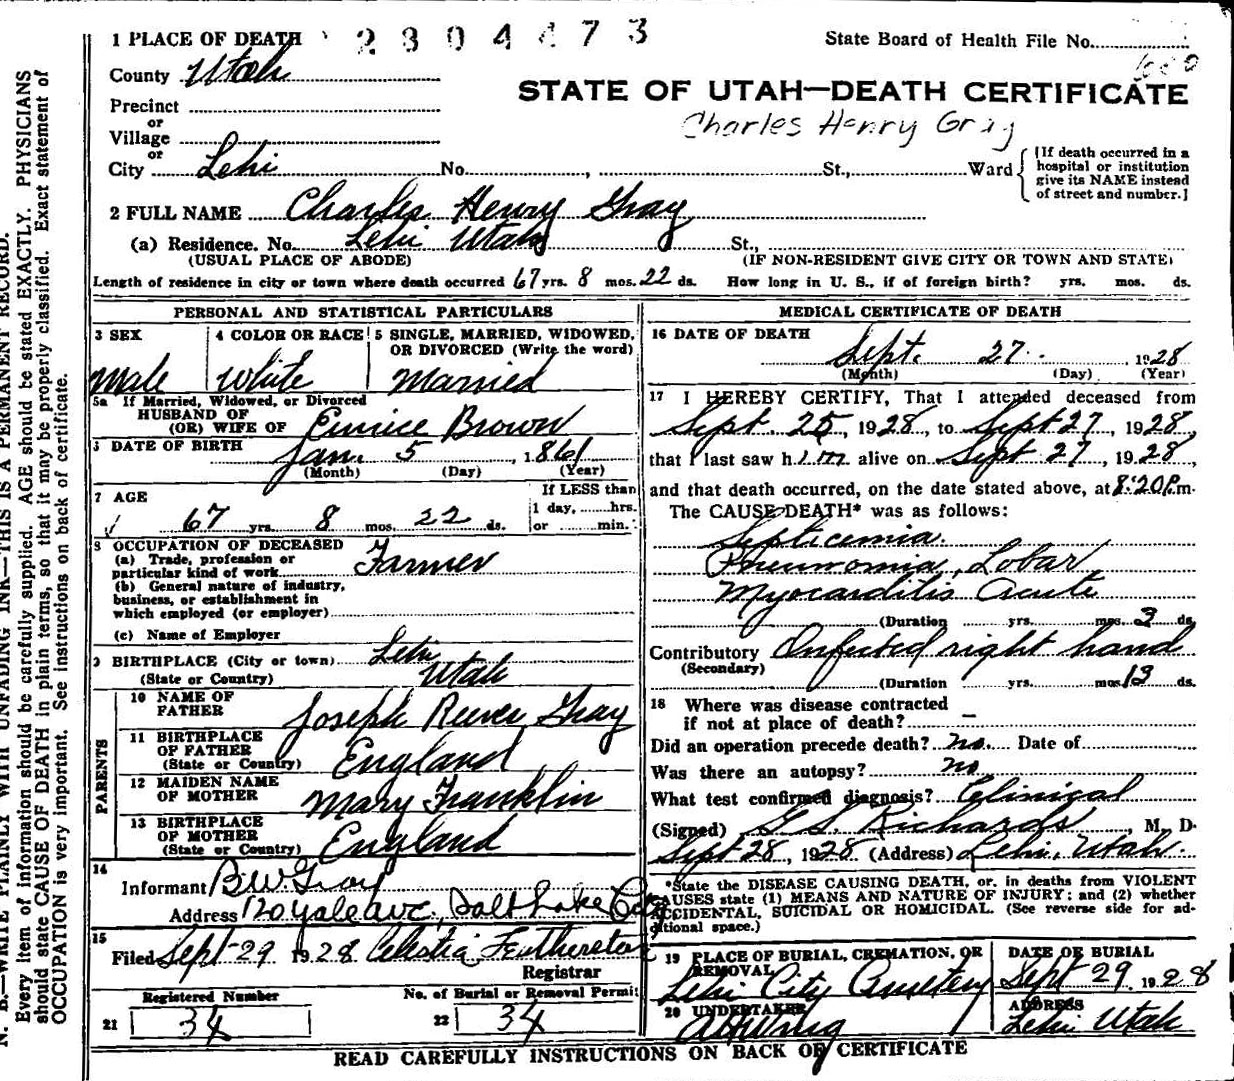 1 PLACE OF DEATH 2304473
State Board of Health File No.
County Utah
STATE OF UTAH—DEATH CERTIFICATE
Precinct
or
Charles Henry Gray
Village
or
City Lehi No. , St., Ward
[If death occurred in a
hospital or institution
give its NAME instead
of street and number.]
2 FULL NAME Charles Henry Gray
(a) Residence. No. Lehi Utah St.,
(USUAL PLACE OF ABODE) (IF NON-RESIDENT GIVE CITY OR TOWN AND STATE)
Length of residence in city or town where death occurred 67 yrs. 8 mos. 22 ds. How long in U. S., if of foreign birth? yrs. mos. ds.
PERSONAL AND STATISTICAL PARTICULARS
3 SEX
Male
4 COLOR OR RACE
White
5 SINGLE, MARRIED, WIDOWED,
OR DIVORCED (Write the word)
Married
5a If Married, Widowed, or Divorced
HUSBAND OF
(OR) WIFE OF Eunice Brown
6 DATE OF BIRTH Jan. 5, 1861
(Month) (Day) (Year)
7 AGE
67 yrs. 8 mos. 22 ds.
If LESS than
1 day, hrs.
or min.
8 OCCUPATION OF DECEASED
(a) Trade, profession or
particular kind of work Farmer
(b) General nature of industry,
business, or establishment in
which employed (or employer)
(c) Name of Employer
9 BIRTHPLACE (City or town) Lehi
(State or Country) Utah
PARENTS
10 NAME OF
FATHER Joseph Reever Gray
11 BIRTHPLACE
OF FATHER
(State or Country) England
12 MAIDEN NAME
OF MOTHER Mary Franklin
13 BIRTHPLACE
OF MOTHER
(State or Country) England
14
Informant B.W. Gray
Address 120 Yale ave., Salt Lake City
15
Filed Sept 29 1928 Celestia Registrar
Registered Number
21 34
No. of Burial or Removal Permit
22 34
MEDICAL CERTIFICATE OF DEATH
16 DATE OF DEATH
Sept. 27. 1928
(Month) (Day) (Year)
17 I HEREBY CERTIFY, That I attended deceased from
Sept. 25, 1928, to Sept 27, 1928,
that I last saw him alive on Sept 27, 1928,
and that death occurred, on the date stated above, at 8:20 P.m.
The CAUSE DEATH* was as follows:
Septicemia.
Pneumonia, Lobar
Myocarditis Acute
(Duration yrs. mos. 3 ds.
Contributory Infected right hand
(Secondary)
(Duration yrs. mos 13 ds.
18 Where was disease contracted
if not at place of death? –
Did an operation precede death? no. Date of
Was there an autopsy? no
What test confirmed diagnosis? Clinical
(Signed) G S. Richards, M. D.
Sept 28, 1928. (Address) Lehi, Utah.
*State the DISEASE CAUSING DEATH, or, in deaths from VIOLENT
CAUSES state (1) MEANS AND NATURE OF INJURY; and (2) whether
ACCIDENTAL, SUICIDAL OR HOMICIDAL. (See reverse side for ad-
ditional space.)
19 PLACE OF BURIAL, CREMATION, OR
REMOVAL
Lehi City Cemetery
DATE OF BURIAL
Sept 29 1928
20 UNDERTAKER
ADDRESS
Lehi Utah
READ CAREFULLY INSTRUCTIONS ON BACK OF CERTIFICATE
N. B.—WRITE PLAINLY WITH UNFADING INK—THIS IS A PERMANENT RECORD.
Every item of information should be carefully supplied. AGE should be stated EXACTLY. PHYSICIANS
should state CAUSE OF DEATH in plain terms, so that it may be properly classified. Exact statement of
OCCUPATION is very important. See instructions on back of certificate.